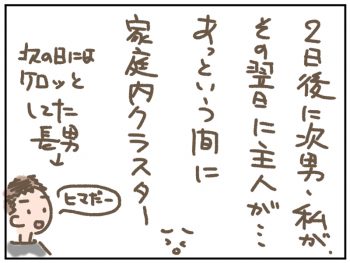 2日後に次男、私が、
その翌日に主人が…
あっという間に
家庭内クラスター
次の日には
ケロッと
してた
長男
ヒマだー